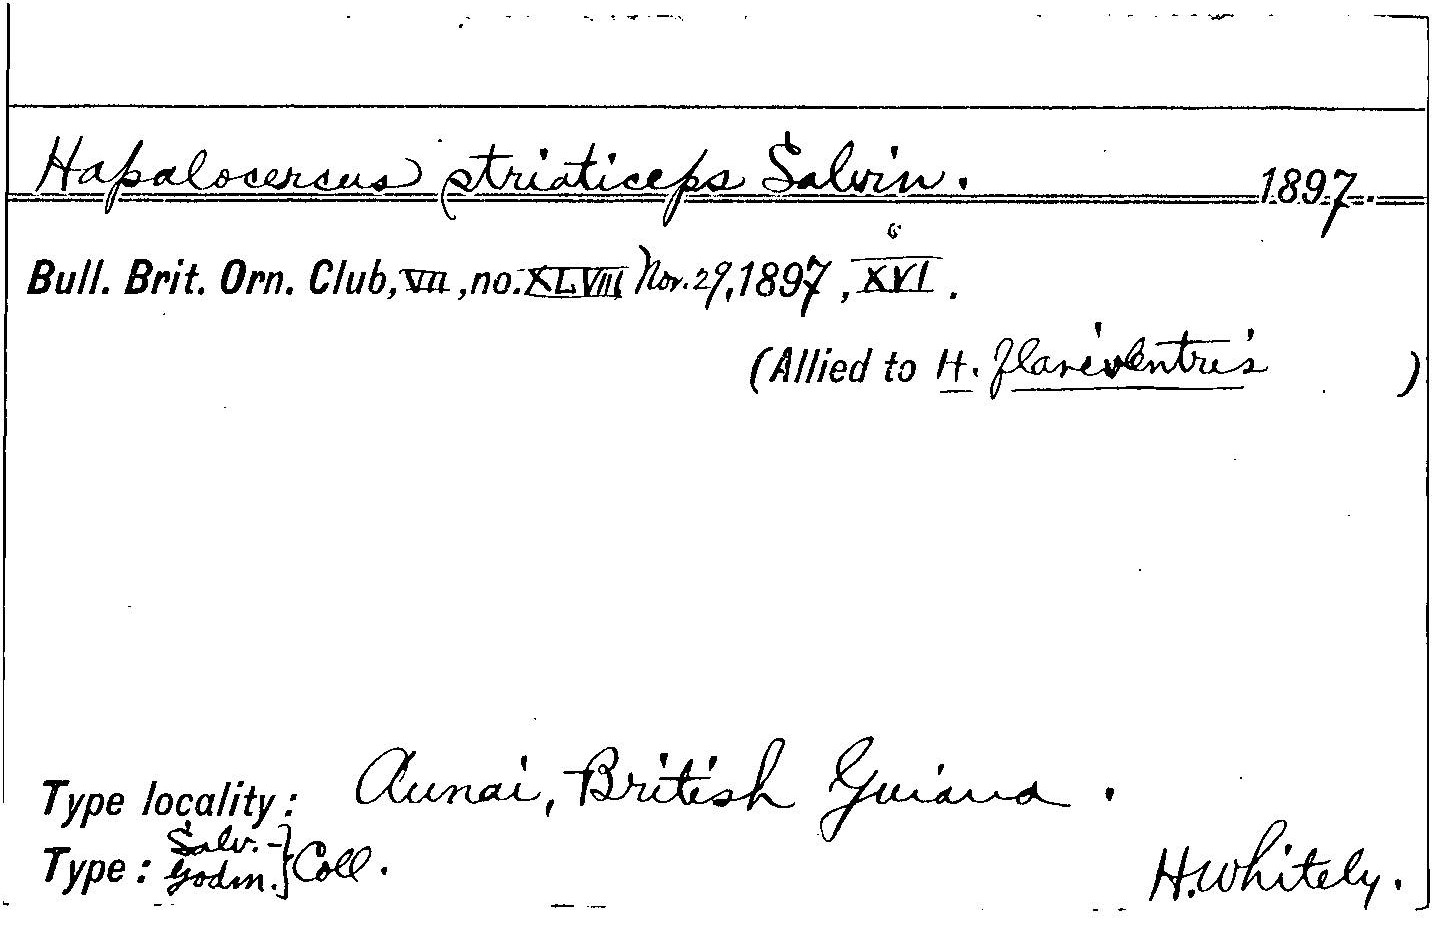 Hapalocercus striaticeps Salvin. 1897.
Bull. Brit. Orn. Club, VII, no. XLVIII Nov. 29, 1897, XVI.
(Allied to H. flaviventris )
Type locality: Aunai, British Guiana.
Type: Salv.-Godm.} Coll.
H. Whitely.